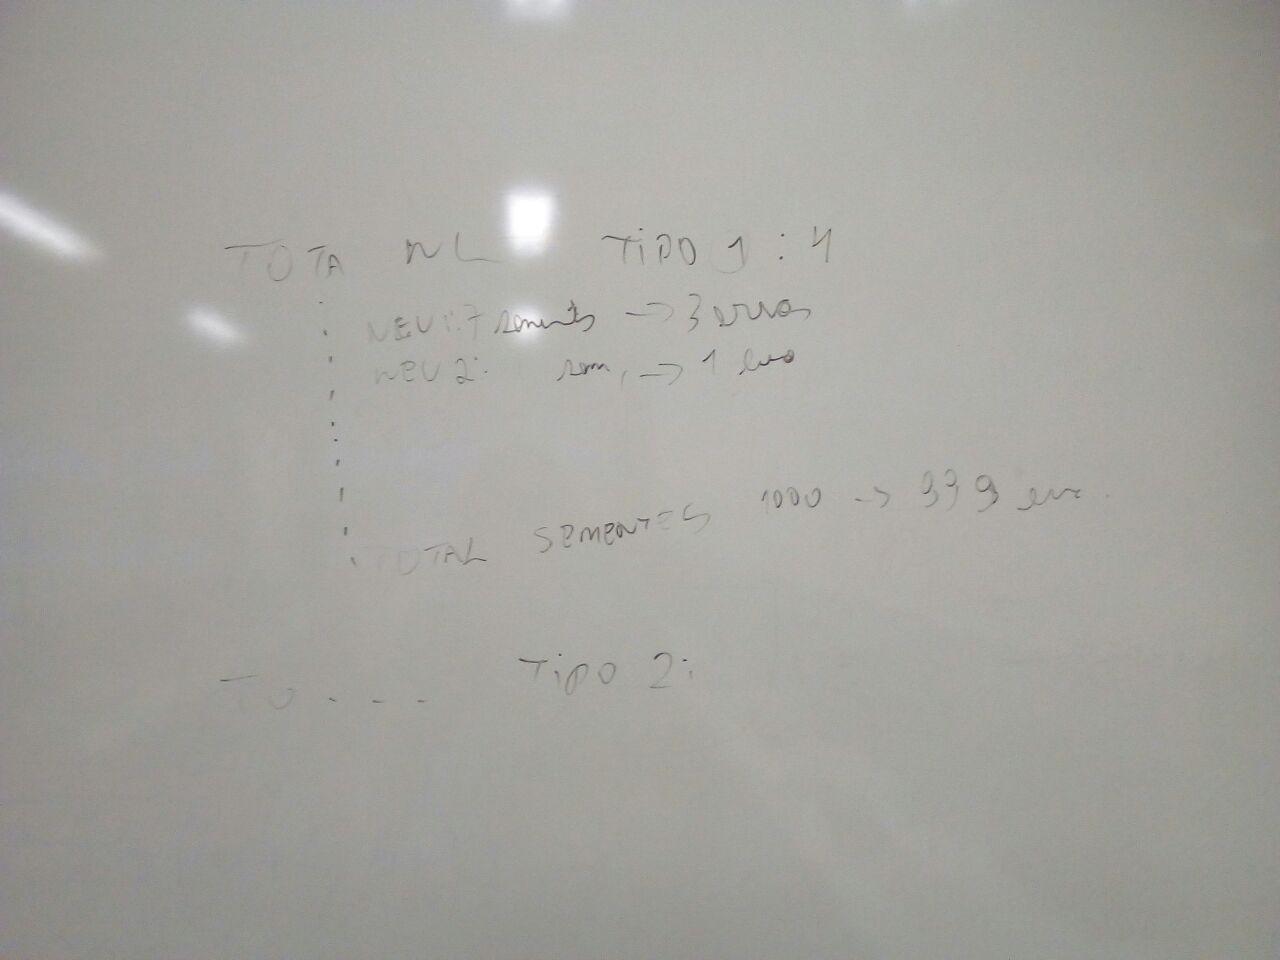 TOTA NL TIPO 1 : 4
NEU 1: 7 sements -> 3 ervas
NEU 2: sem, -> 1 erva
TOTAL SEMENTES 1000 -> 339 erv.
TO . - - TIPO 2: